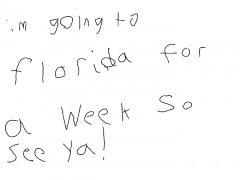 im going to
florida for
a Week So
See ya!